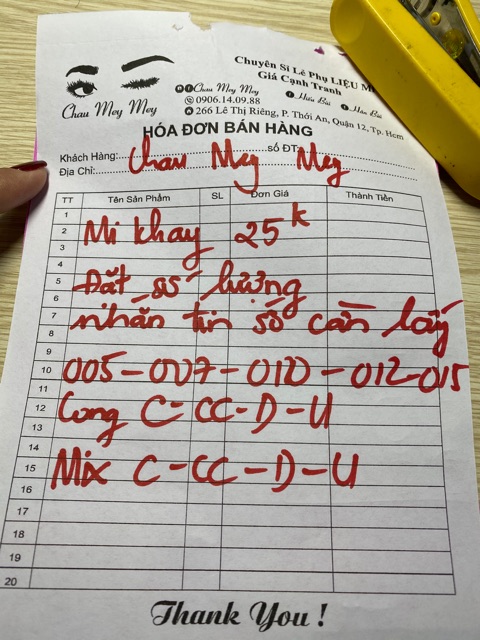 Chuyên Sỉ Lẻ Phụ LIỆU M
Giá Cạnh Tranh
Chau Mey Mey
0906.14.09.88
266 Lê Thị Riêng, P. Thới An, Quận 12, Tp. Hcm
Chau Mey Mey
HÓA ĐƠN BÁN HÀNG
Khách Hàng: số ĐT:
Chau Mey Mey
Địa Chỉ:
TT Tên Sản Phẩm SL Đơn Giá Thành Tiền
1
2
Mi khay 25k
3
4
5
Đặt số lượng
6
7
nhắn tin số cần lấy
8
9
10
005-007-010-012-015
11
12
Cong C-CC-D-U
13
14
15
Mix C-CC-D-U
16
17
18
19
20
Thank You !